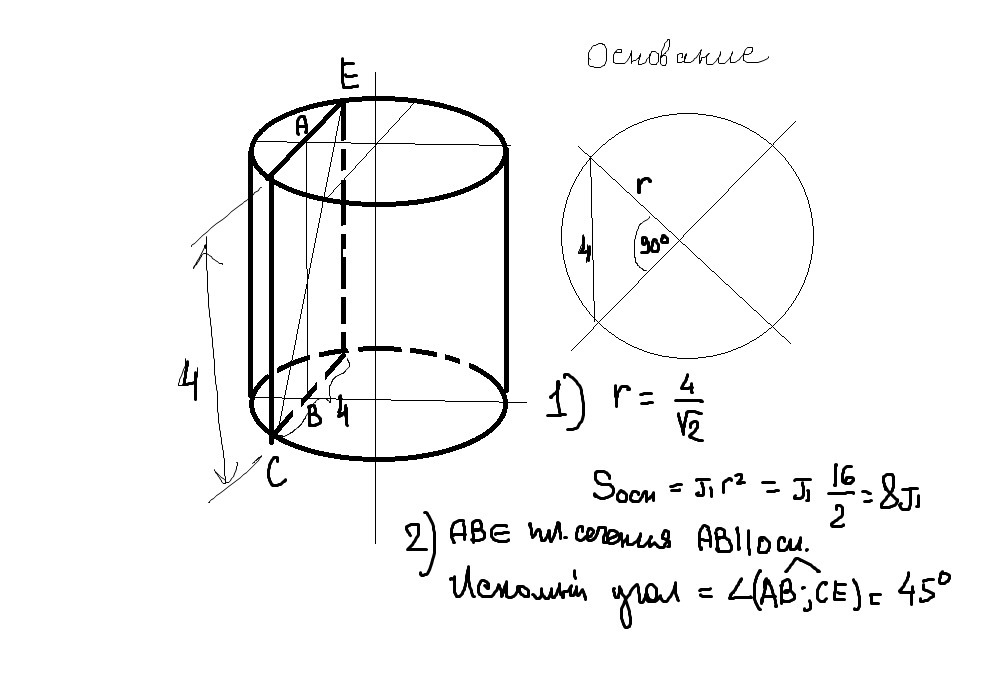 Основание
E
A
r
4
90°
4
B 4
C
1) r = 4/√2
Sосн = π r² = π 16/2 = 8π
2) AB ∈ пл. сечения AB || оси.
Искомый угол = ∠(AB^;CE) = 45°